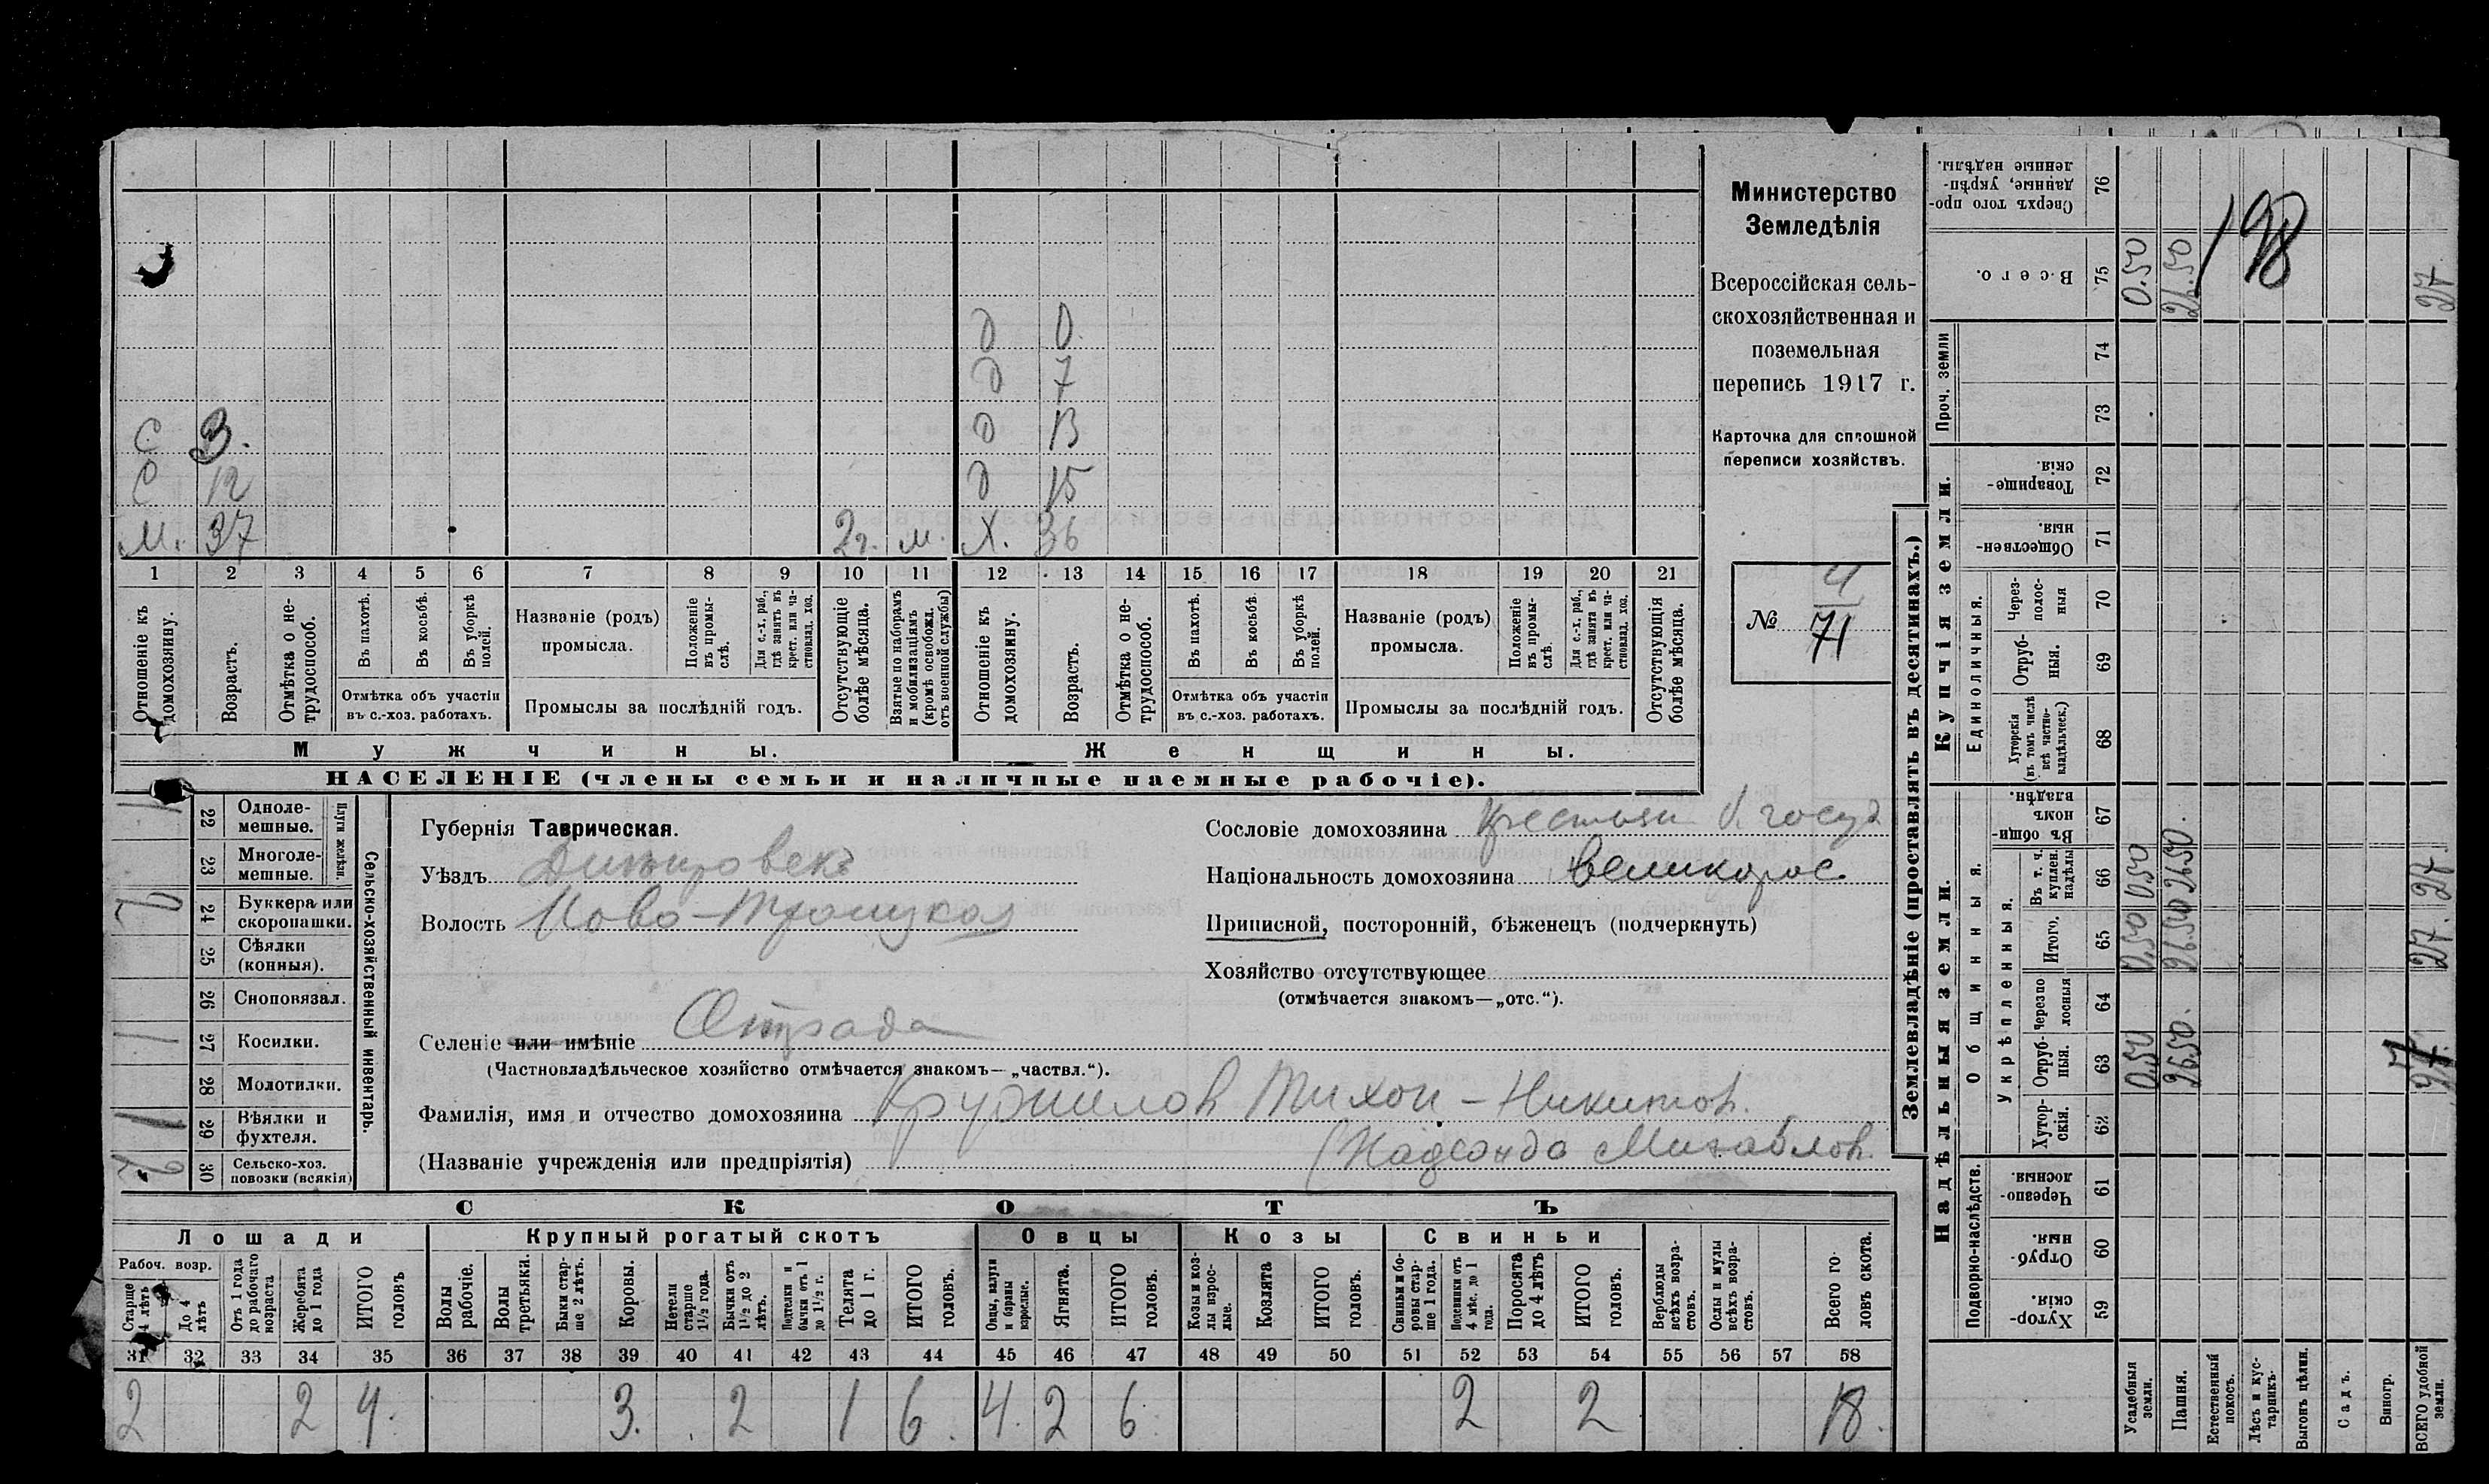 Министерство
Земледѣлія
Всероссійская сель-
скохозяйственная и
поземельная
перепись 1917 г.
Карточка для сплошной
переписи хозяйствъ.
№ 4
71
198
Д 0
Д 7
С 3. Д 13
С 12 Д 15
М. 37 2 г. м. Х. 36
1 2 3 4 5 6 7 8 9 10 11 12 13 14 15 16 17 18 19 20 21
Отношеніе къ домохозяину.
Возрастъ.
Отмѣтка о не-трудоспособ.
Въ пахотѣ.
Въ косьбѣ.
Въ уборкѣ полей.
Отмѣтка объ участіи въ с.-хоз. работахъ.
Названіе (родъ) промысла.
Положеніе въ промы-слѣ.
Для с.-х. раб., гдѣ занятъ въ крест. или ча-стновлад. хоз.
Промыслы за послѣдній годъ.
Отсутствующіе болѣе мѣсяца.
Взятые по наборамъ и мобилизаціямъ (кромѣ освобожд. отъ военной службы)
Отношеніе къ домохозяину.
Возрастъ.
Отмѣтка о не-трудоспособ.
Въ пахотѣ.
Въ косьбѣ.
Въ уборкѣ полей.
Отмѣтка объ участіи въ с.-хоз. работахъ.
Названіе (родъ) промысла.
Положеніе въ промы-слѣ.
Для с.-х. раб., гдѣ занята въ крест. или ча-стновлад. хоз.
Промыслы за послѣдній годъ.
Отсутствующія болѣе мѣсяца.
Мужчины. Женщины.
НАСЕЛЕНІЕ (члены семьи и наличные наемные рабочіе).
Сельско-хозяйственный инвентарь.
Плуги желѣзн.
22 Одноле-мешные. 1
23 Многоле-мешные.
24 Буккера или скоропашки.
25 Сѣялки (конныя).
26 Сноповязал.
27 Косилки. 1
28 Молотилки.
29 Вѣялки и фухтеля. 1
30 Сельско-хоз. повозки (всякія)
Губернія Таврическая.
Уѣздъ Днѣпровскъ
Волость Ново-Троицкая
Селеніе или имѣніе Отрада
(Частновладѣльческое хозяйство отмѣчается знакомъ—„частвл.“).
Фамилія, имя и отчество домохозяина Кружилов Тихон - Никитов.
(Названіе учрежденія или предпріятія) (Надежда Михайлов.
Сословіе домохозяина Крестьян б. госуд
Національность домохозяина великорос.
Приписной, посторонній, бѣженецъ (подчеркнуть)
Хозяйство отсутствующее
(отмѣчается знакомъ—„отс.“).
СКОТЪ
Лошади Крупный рогатый скотъ Овцы Козы Свиньи
Рабоч. возр.
Старше 4 лѣтъ
До 4 лѣтъ
Отъ 1 года до рабочаго возраста
Жеребята до 1 года
ИТОГО головъ
Волы рабочіе.
Волы третьяки.
Быки стар-ше 2 лѣтъ.
Коровы.
Нетели старше 1½ года.
Бычки отъ 1½ до 2 лѣтъ.
Подтелки и бычки отъ 1 до 1½ г.
Телята до 1 г.
ИТОГО головъ.
Овцы, валухи и бараны взрослые.
Ягнята.
ИТОГО головъ.
Козы и коз-лы взрос-лые.
Козлята
ИТОГО головъ.
Свиньи и бо-ровы стар-ше 1 года.
Подсвинки отъ 4 мѣс. до 1 года.
Поросята до 4 лѣтъ
ИТОГО головъ.
Верблюды всѣхъ возра-стовъ.
Ослы и мулы всѣхъ возра-стовъ.
Всего го-ловъ скота.
31 32 33 34 35 36 37 38 39 40 41 42 43 44 45 46 47 48 49 50 51 52 53 54 55 56 57 58
2 2 4. 3. 2 1 6. 4. 2 6 2 2 18.
Землевладѣніе (проставлять въ десятинахъ.)
Купчія земли.
Надѣльныя земли.
Проч. земли
Единоличныя.
Общинныя.
Укрѣпленныя.
Подворно-наслѣдств.
Сверхъ того про-данные, укрѣп-ленные надѣлы. 76
Всего. 75 0.50 26.50 27
74
73
Товарище-скія. 72
Обществен-ныя. 71
Через-полос-ныя 70
Отруб-ныя. 69
Хуторскія (въ томъ числѣ всѣ частно-владѣльческ.) 68
Въ общи-номъ владѣн. 67
Въ т. ч. куплен. надѣлы 66 0.50 26.50. 27.
Итого. 65 0.50 26.50 27.
Черезпо лосныя 64
Отруб-ныя. 63 0.50 26.50. 27.
Хутор-скія. 62
Черезпо-лосныя 61
Отруб-ныя. 60
Хутор-скія. 59
Усадебныя земли.
Пашня.
Естественный покосъ.
Лѣсъ и кус-тарникъ.
Выгонъ цѣлин.
Садъ.
Виногр.
ВСЕГО удобной земли.